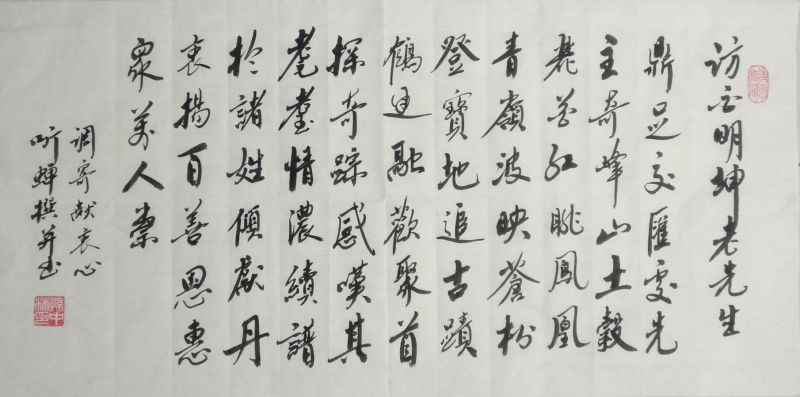 访明坤老先生
鼎足交匯雯先
主奇峰山土穀
苍红眺鳳凰
青嶺波映蒼松
登寶地追古蹟
鶴迎融歡聚首
探奇踪感嘆其
耄耋情濃續譜
於諸姓傾獻丹
衷揚百善恩惠
衆美人崇
调寄献衷心
听蝉撰并书